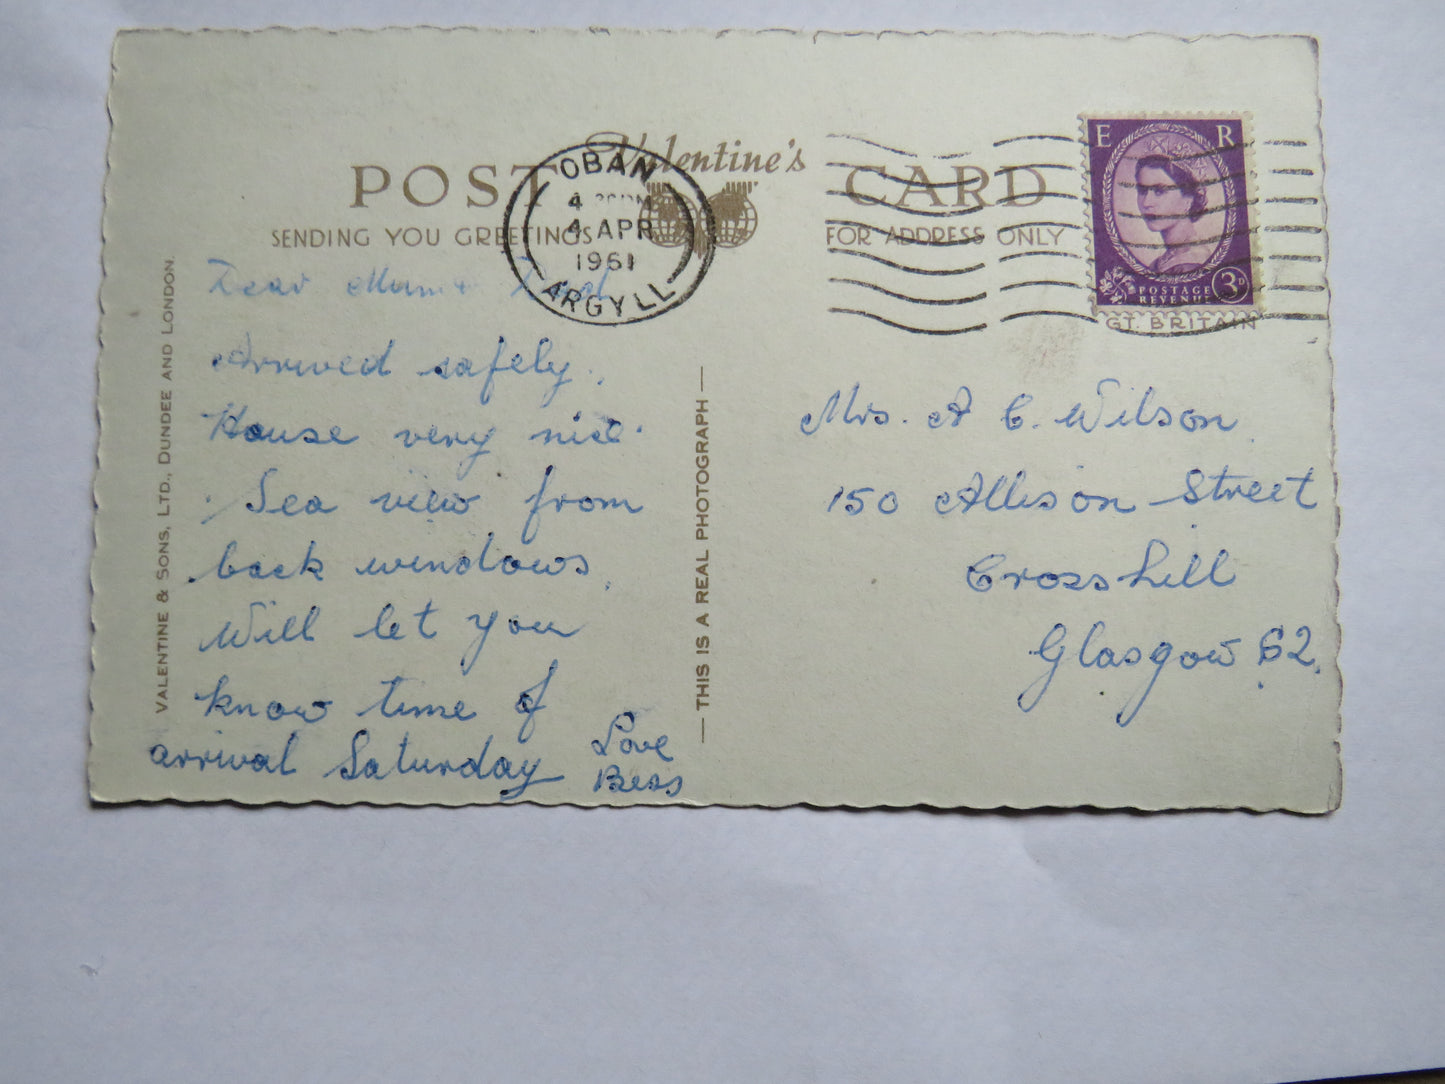 Valentine's
POST CARD
SENDING YOU GREETINGS
FOR ADDRESS ONLY
OBAN
4
4 APR
1961
ARGYLL
E R
POSTAGE
REVENUE
3D
GT. BRITAIN
VALENTINE & SONS, LTD., DUNDEE AND LONDON.
Dear Mum + Dad
Arrived safely.
House very nice.
Sea view from
back windows.
Will let you
know time of
arrival Saturday
Love
Bess
— THIS IS A REAL PHOTOGRAPH —
Mrs. A C. Wilson
150 Allison Street
Crosshill
Glasgow S2.